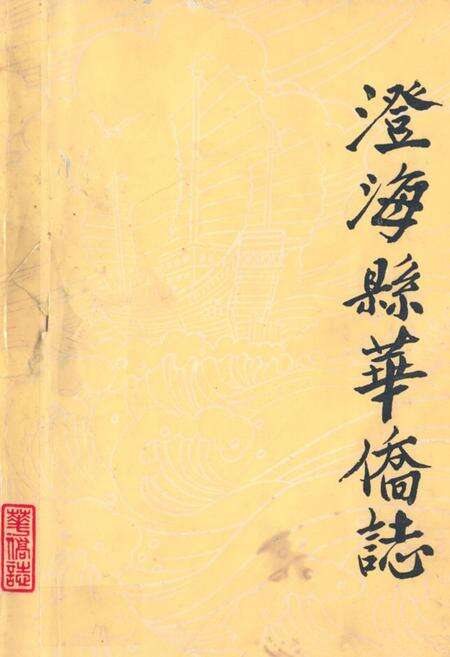 澄海縣華僑誌
華僑誌